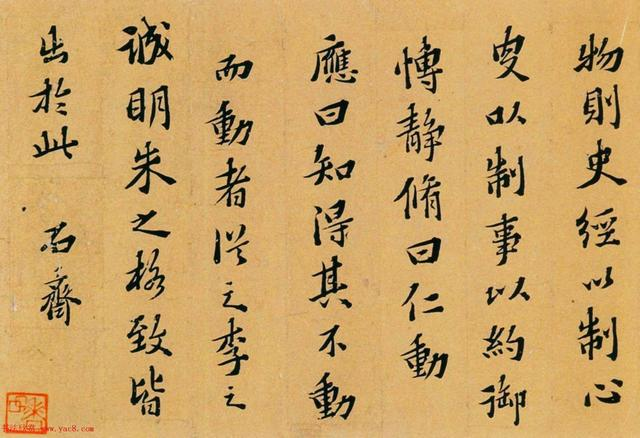 物則史經以制心
史以制事以約御
博靜脩曰仁動
應曰知得其不動
而動者從之李之
誠明朱之格致皆
出於此 尚齋
书法欣赏 www.yac8.com